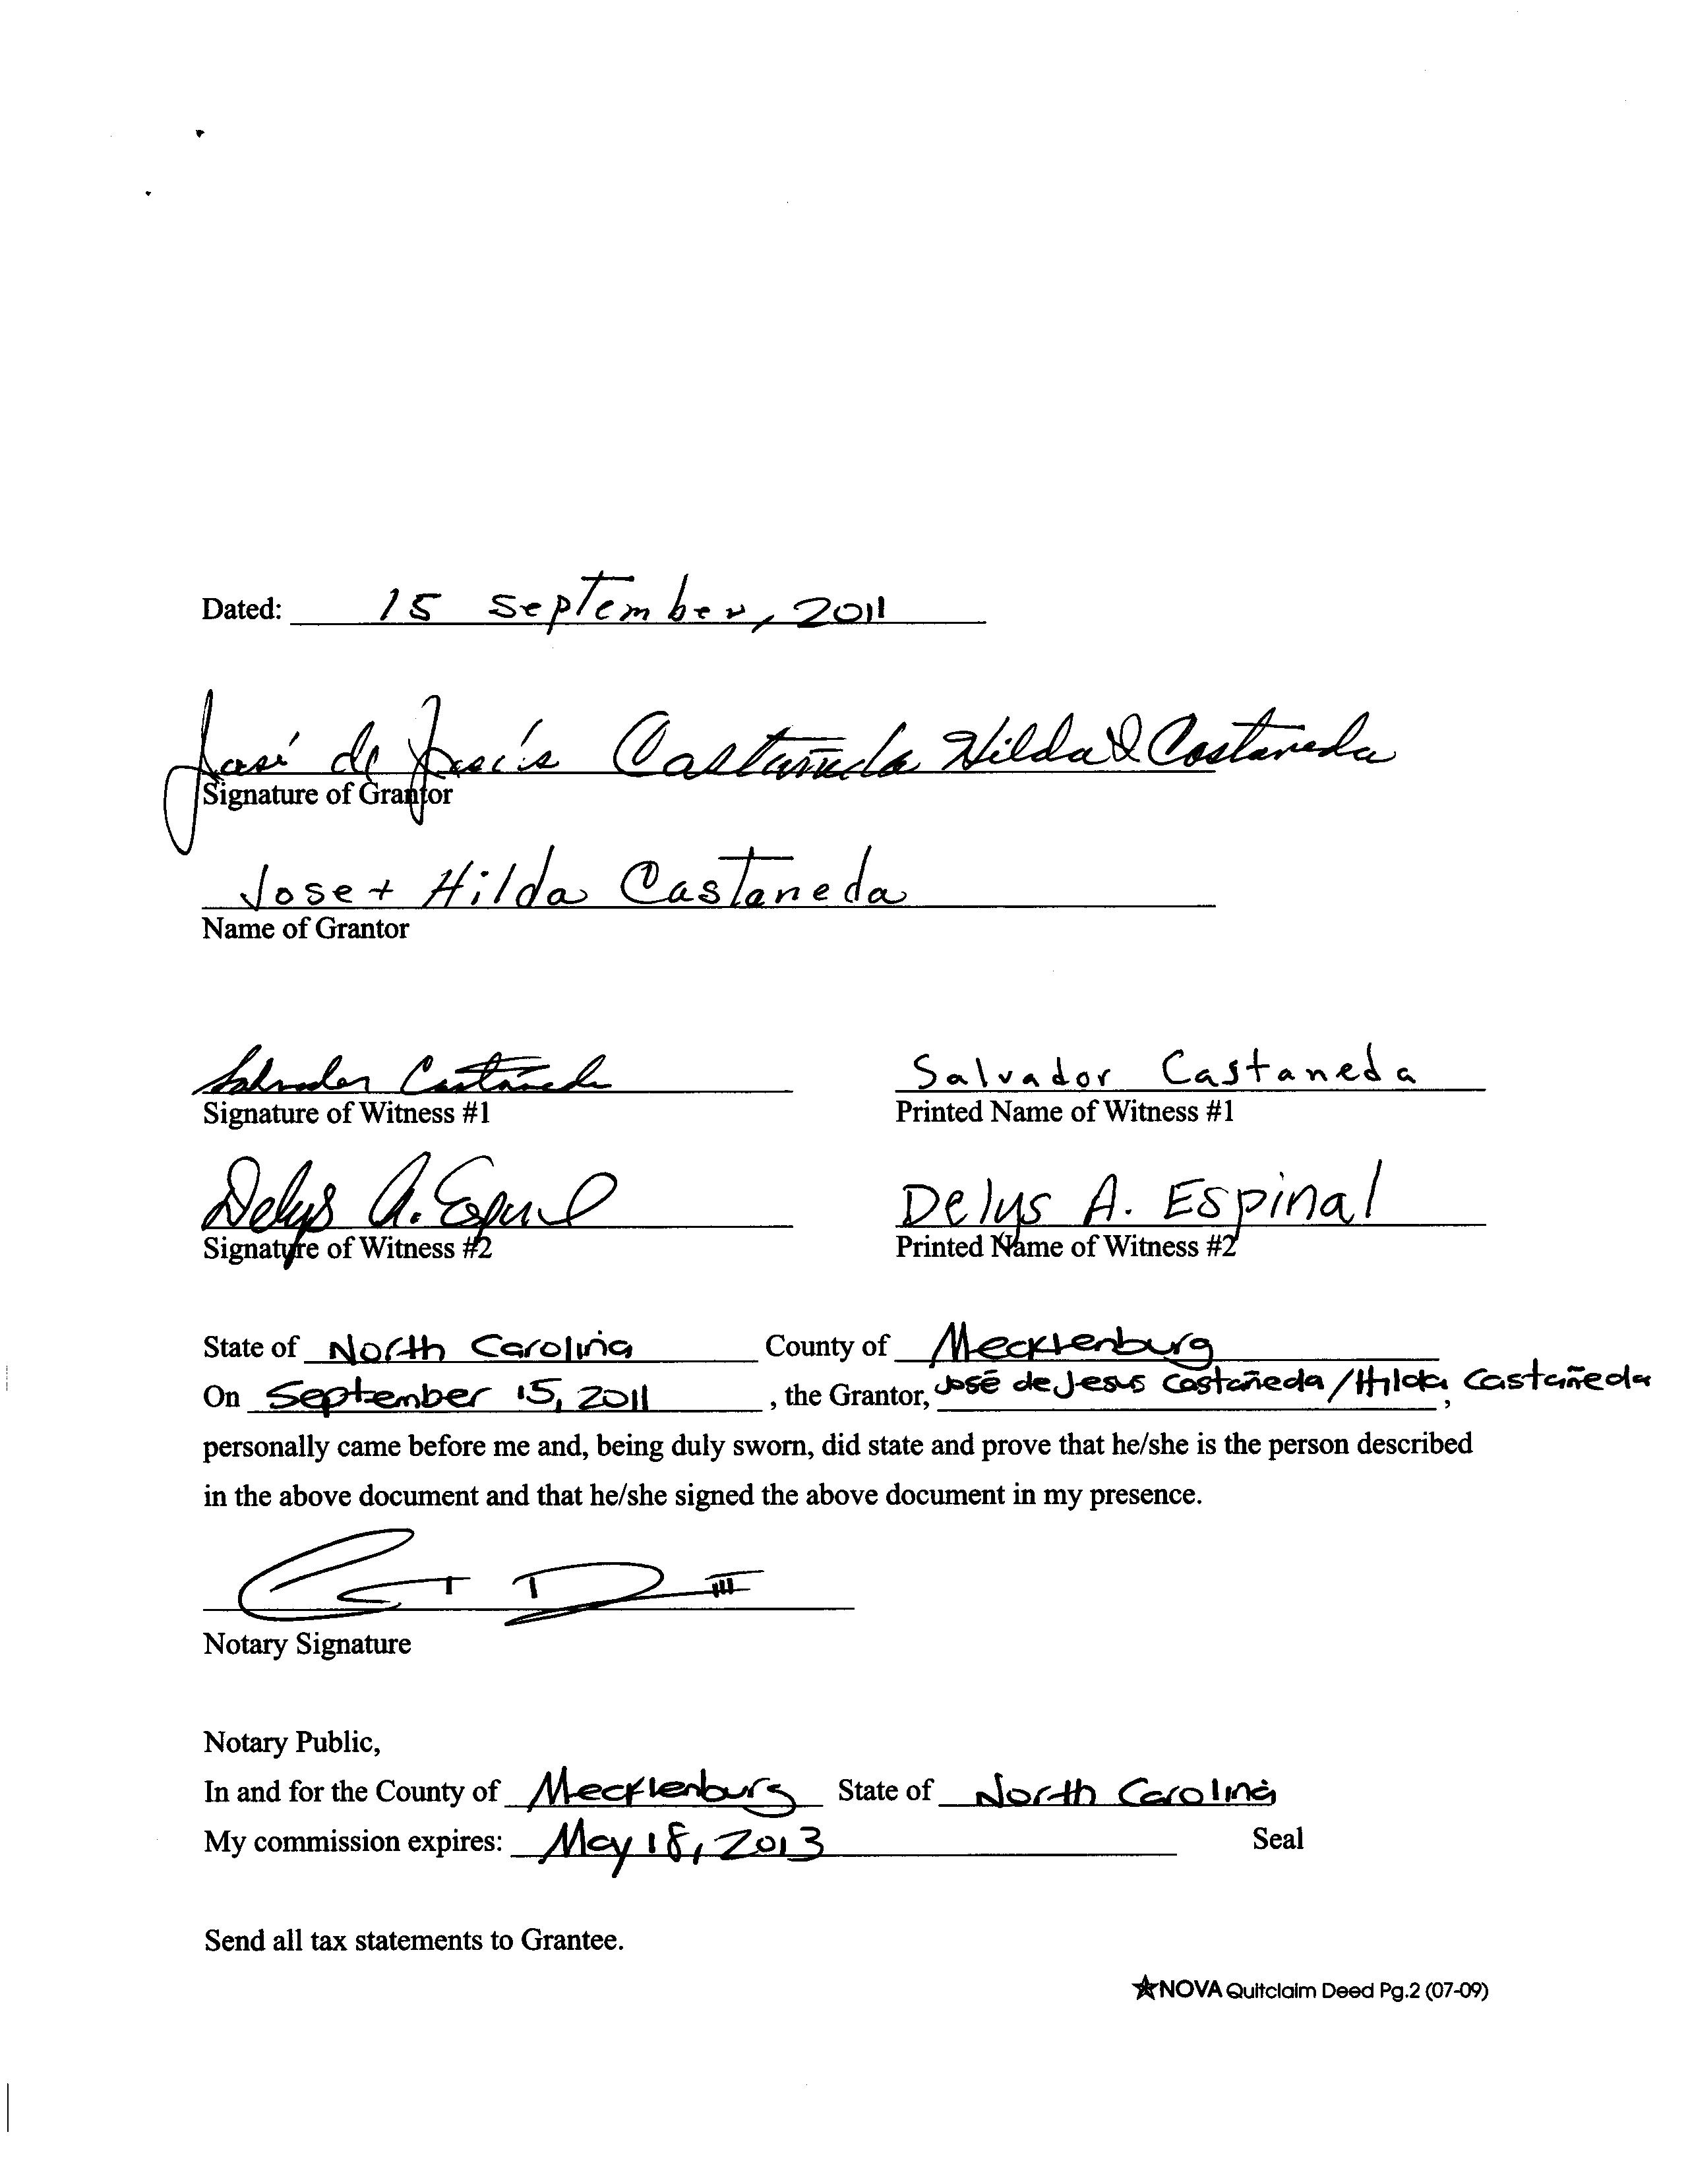 Dated: 15 September, 2011
José de Jesús Castañeda Hilda L Castaneda
Signature of Grantor
Jose + Hilda Castaneda
Name of Grantor
Salvador Castañeda Salvador Castaneda
Signature of Witness #1 Printed Name of Witness #1
Delys A. Espinal Delys A. Espinal
Signature of Witness #2 Printed Name of Witness #2
State of North Carolina County of Mecklenburg
On September 15, 2011, the Grantor, José de Jesus Castañeda / Hilda Castañeda,
personally came before me and, being duly sworn, did state and prove that he/she is the person described
in the above document and that he/she signed the above document in my presence.
Notary Signature
Notary Public,
In and for the County of Mecklenburg State of North Carolina
My commission expires: May 18, 2013 Seal
Send all tax statements to Grantee.
NOVA Quitclaim Deed Pg.2 (07-09)